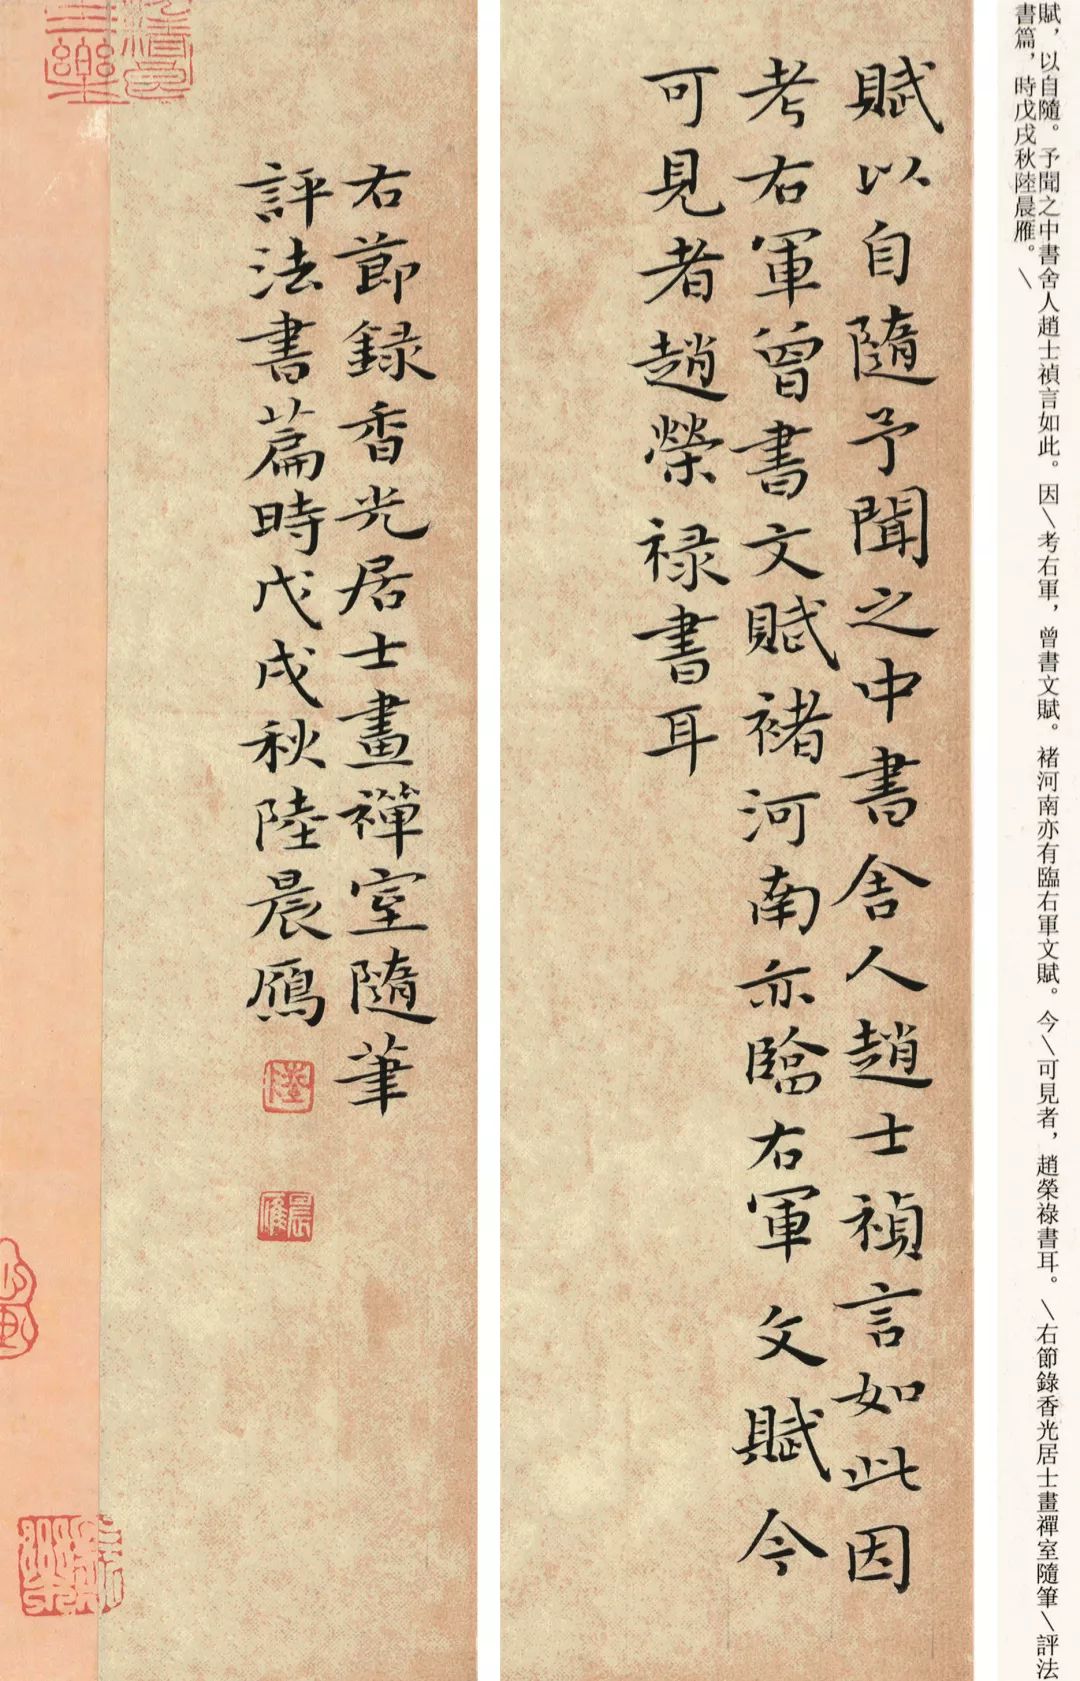 賦，以自隨。予聞之中書舍人趙士禎言如此。因\考右軍，曾書文賦。褚河南亦有臨右軍文賦。今\可見者，趙榮祿書耳。\右節錄香光居士畫禪室隨筆\評法
書篇，時戊戌秋陸晨雁。\
賦以自隨予聞之中書舍人趙士禎言如此因
考右軍曾書文賦褚河南亦臨右軍文賦今
可見者趙榮祿書耳
右節録香光居士畫禪室隨筆
評法書篇時戊戌秋陸晨鴈
陸
晨雁